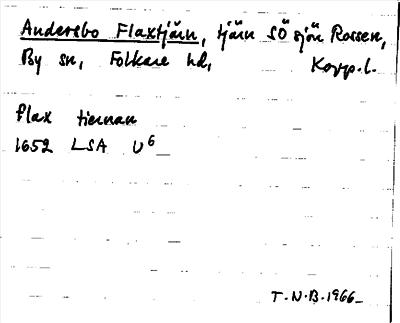 Andersbo Flaxtjärn, tjärn SÖ sjön Rossen,
By sn, Folkare hd, Kopp. l.
flax tiernan
1652 LSA U6
T.N.B. 1966